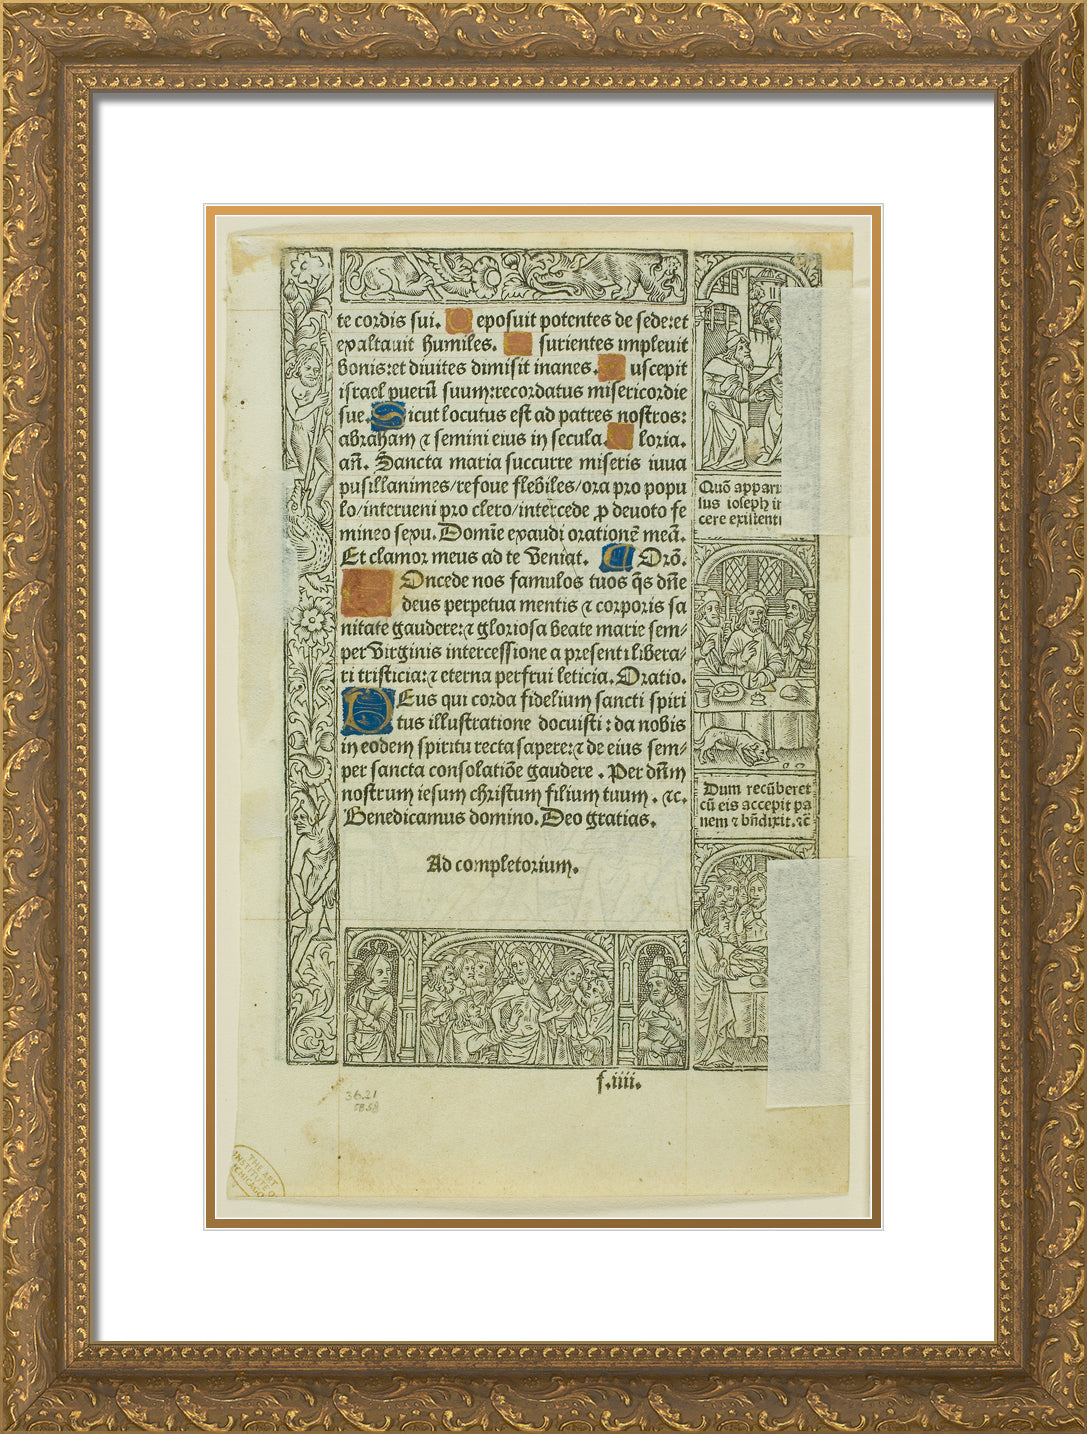 te cordis sui. D eposuit potentes de sede:et
exaltauit humiles. E surientes impleuit
bonis:et diuites dimisit inanes. S uscepit
israel puerū suum:recordatus misericordie
sue. S icut locutus est ad patres nostros:
abraham ⁊ semini eius in secula. G loria.
añ. Sancta maria succurre miseris iuua
pusillanimes/refoue flebiles/ora pro popu
lo/interueni pro clero/intercede ꝓ deuoto fe
mineo sexu. Domīe exaudi orationē meā.
Et clamor meus ad te veniat. Orō.
COncede nos famulos tuos q̄s dñe
deus perpetua mentis ⁊ corporis sa
nitate gaudere:⁊ gloriosa beate marie sem-
per virginis intercessione a presenti libera-
ri tristicia:⁊ eterna perfrui leticia. Oratio.
DEus qui corda fidelium sancti spiri
tus illustratione docuisti : da nobis
in eodem spiritu recta sapere:⁊ de eius sem-
per sancta consolatiōe gaudere . Per dñm
nostrum iesum christum filium tuum . ⁊c.
Benedicamus domino. Deo gratias.
Ad completorium.
f.iiii.
Quō appar
ius ioseph in
cere existenti
Dum recūberet
cū eis accepit pa
nem ⁊ bñdixit. ⁊c̄
36.21
THE ART
INSTITUTE O
CHICAGO